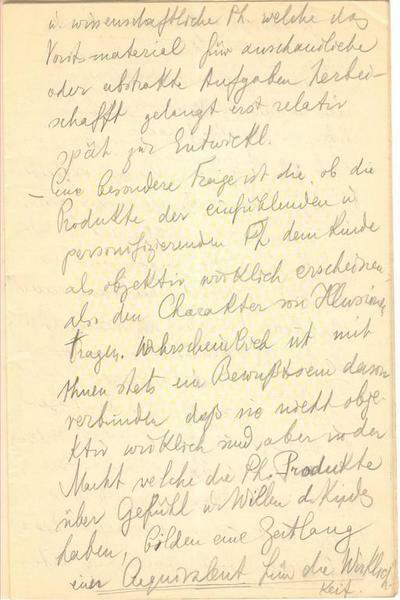 u. wissenschaftliche Ph. welche das
Vorst-material für anschauliche
oder abstrakte Aufgaben herbei-
schafft gelangt erst relativ
spät zur Entwickl.
– Eine besondere Frage ist die, ob die
Produkte der einfühlenden u
personifizierenden Ph dem Kinde
als objektiv wirklich erscheinen
also den Charakter von Illusion
tragen. Wahrscheinlich ist mit
Ihnen stets ein Bewußtsein davon
verbunden daß sie nicht obje-
ktiv wirklich sind, aber in der
Macht welche die Ph. Produkte
über Gefühl u Willen d. Kindes
haben, bilden eine Zeitlang
einen Aequivalent für die Wirklich
Keit.